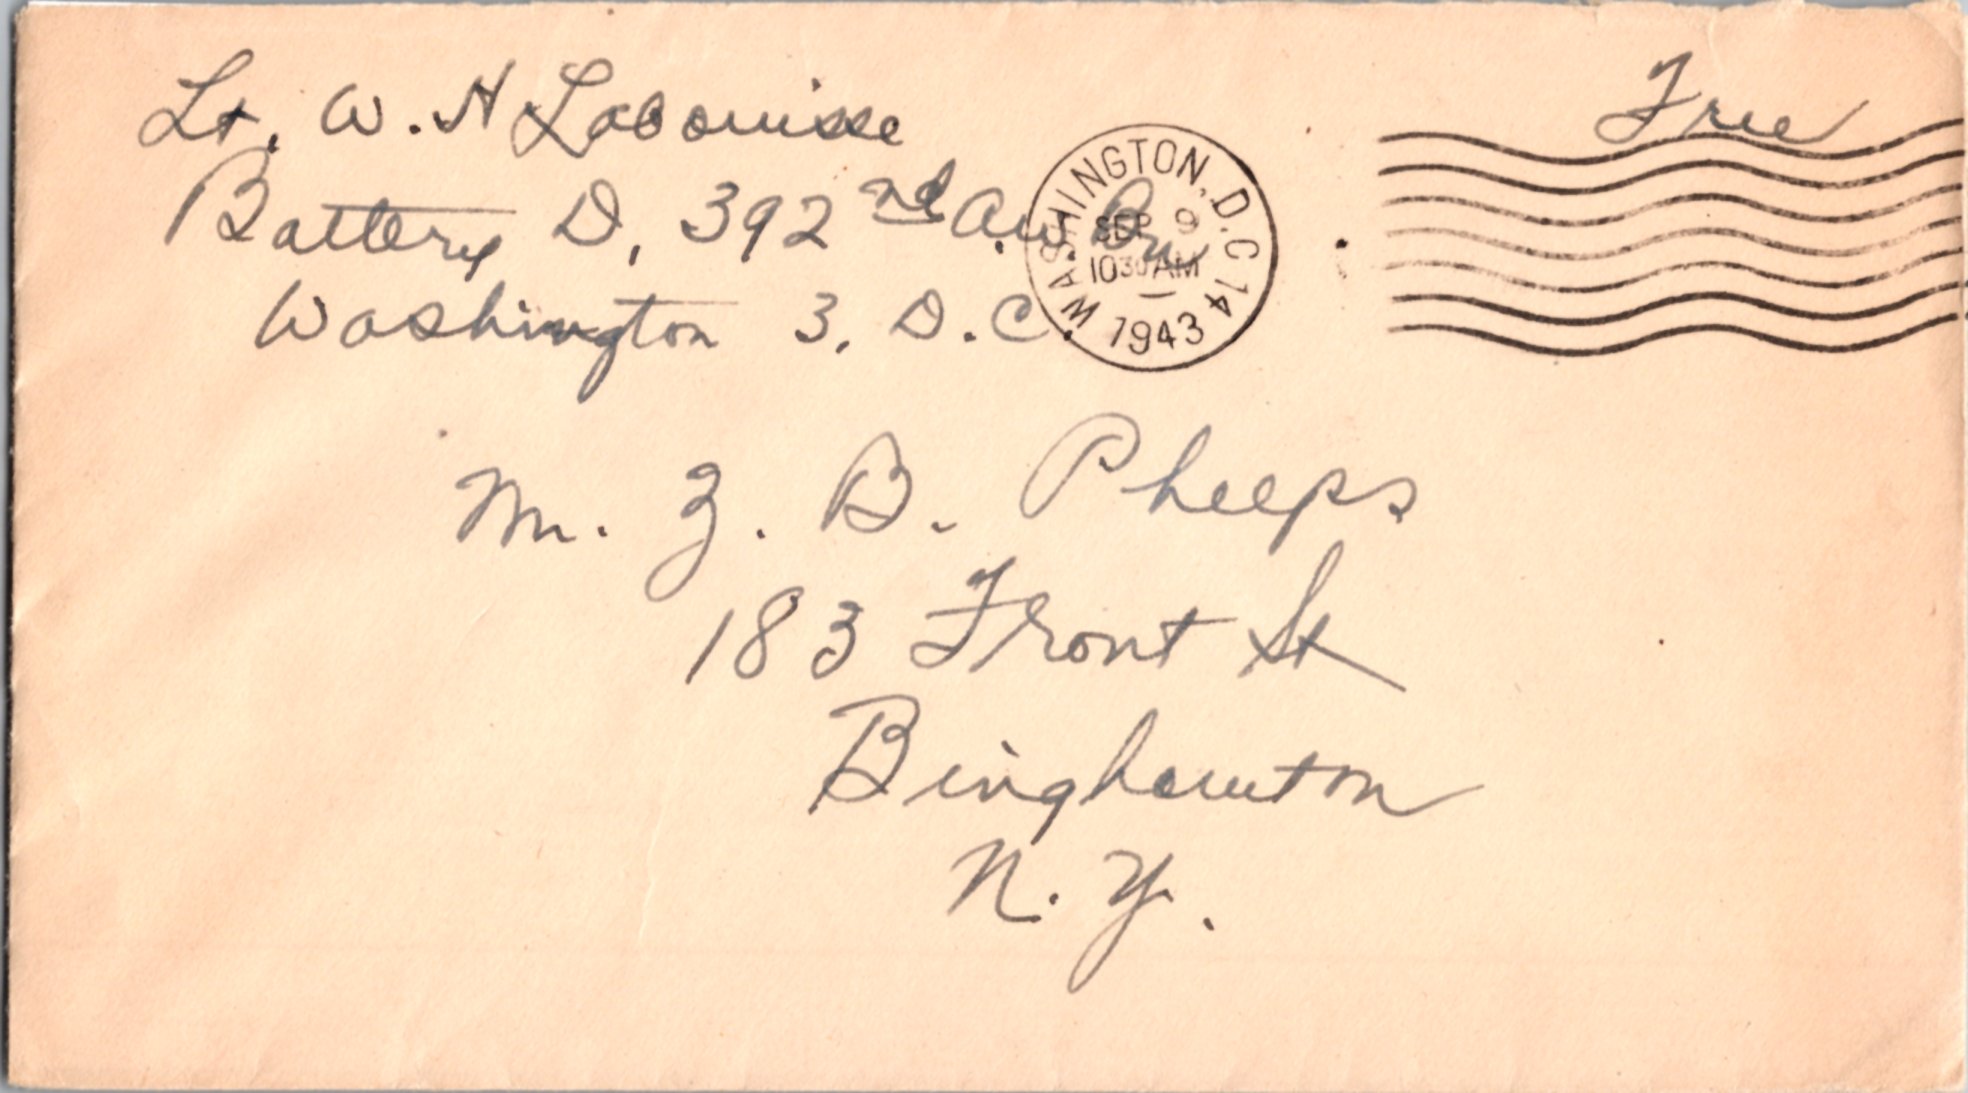 Lt. W. H Labouisse
Free
Battery D, 392nd A.W. Bn
Washington 3, D.C.
WASHINGTON, D.C. 14
SEP 9
10 30 AM
1943
Mr. Z. B. Phelps
183 Front St
Binghamton
N. Y.